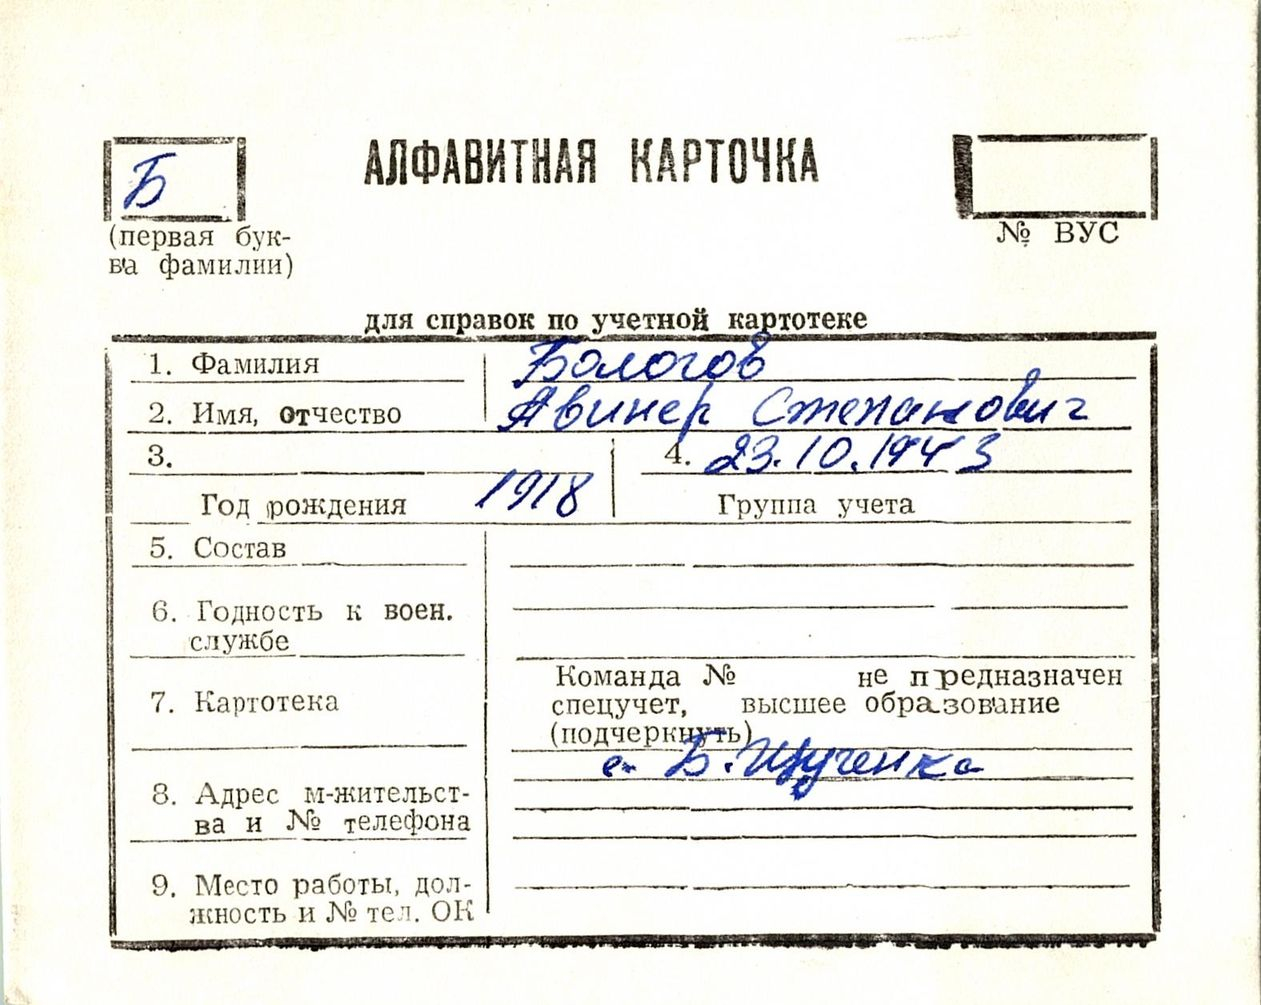 Б
АЛФАВИТНАЯ КАРТОЧКА
(первая бук-
ва фамилии)
№ ВУС
для справок по учетной картотеке
1. Фамилия Бологов
2. Имя, отчество Авинер Степанович
3. 4. 23.10.1943
Год рождения 1918 Группа учета
5. Состав
6. Годность к воен.
службе
7. Картотека
Команда № не предназначен
спецучет, высшее образование
(подчеркнуть)
с. Б. Щученка
8. Адрес м-жительст-
ва и № телефона
9. Место работы, дол-
жность и № тел. ОК